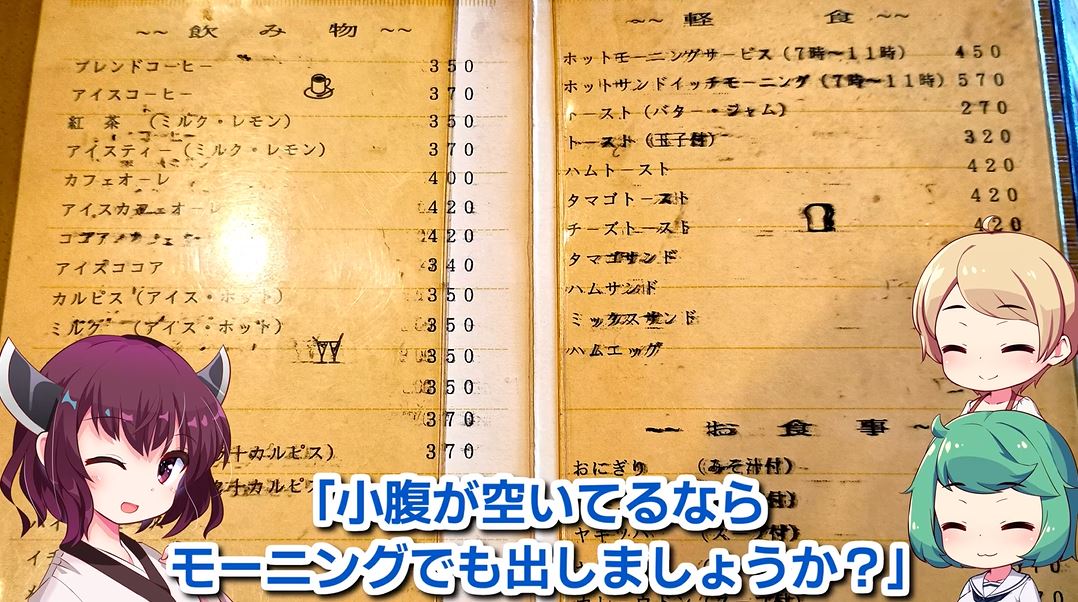 ~~ 飲み物 ~~
ブレンドコーヒー 350
アイスコーヒー 370
紅茶 (ミルク・レモン) 350
アイスティー(ミルク・レモン) 370
カフェオーレ 400
アイスカフェオーレ 420
420
アイスココア 340
カルピス(アイス・ホット) 350
ミルク (アイス・ホット) 350
350
350
370
十カルピス) 370
十カルピス
~~ 軽食 ~~
ホットモーニングサービス(7時〜11時) 450
ホットサンドイッチモーニング(7時〜11時) 570
トースト(バター・ジャム) 270
トースト(玉子付) 320
ハムトースト 420
タマゴトースト 420
チーズトースト 420
タマゴサンド
ハムサンド
ミックスサンド
ハムエッグ
お食事
おにぎり (みそ汁付)
「小腹が空いてるなら
モーニングでも出しましょうか?」